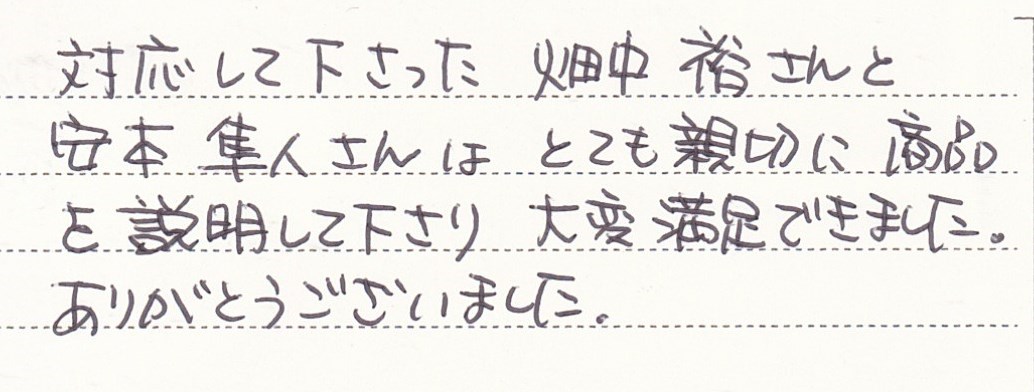 対応して下さった 畑中 裕さんと
安本 隼人さんは とても親切に 商品
を説明して下さり 大変満足できました。
ありがとうございました。